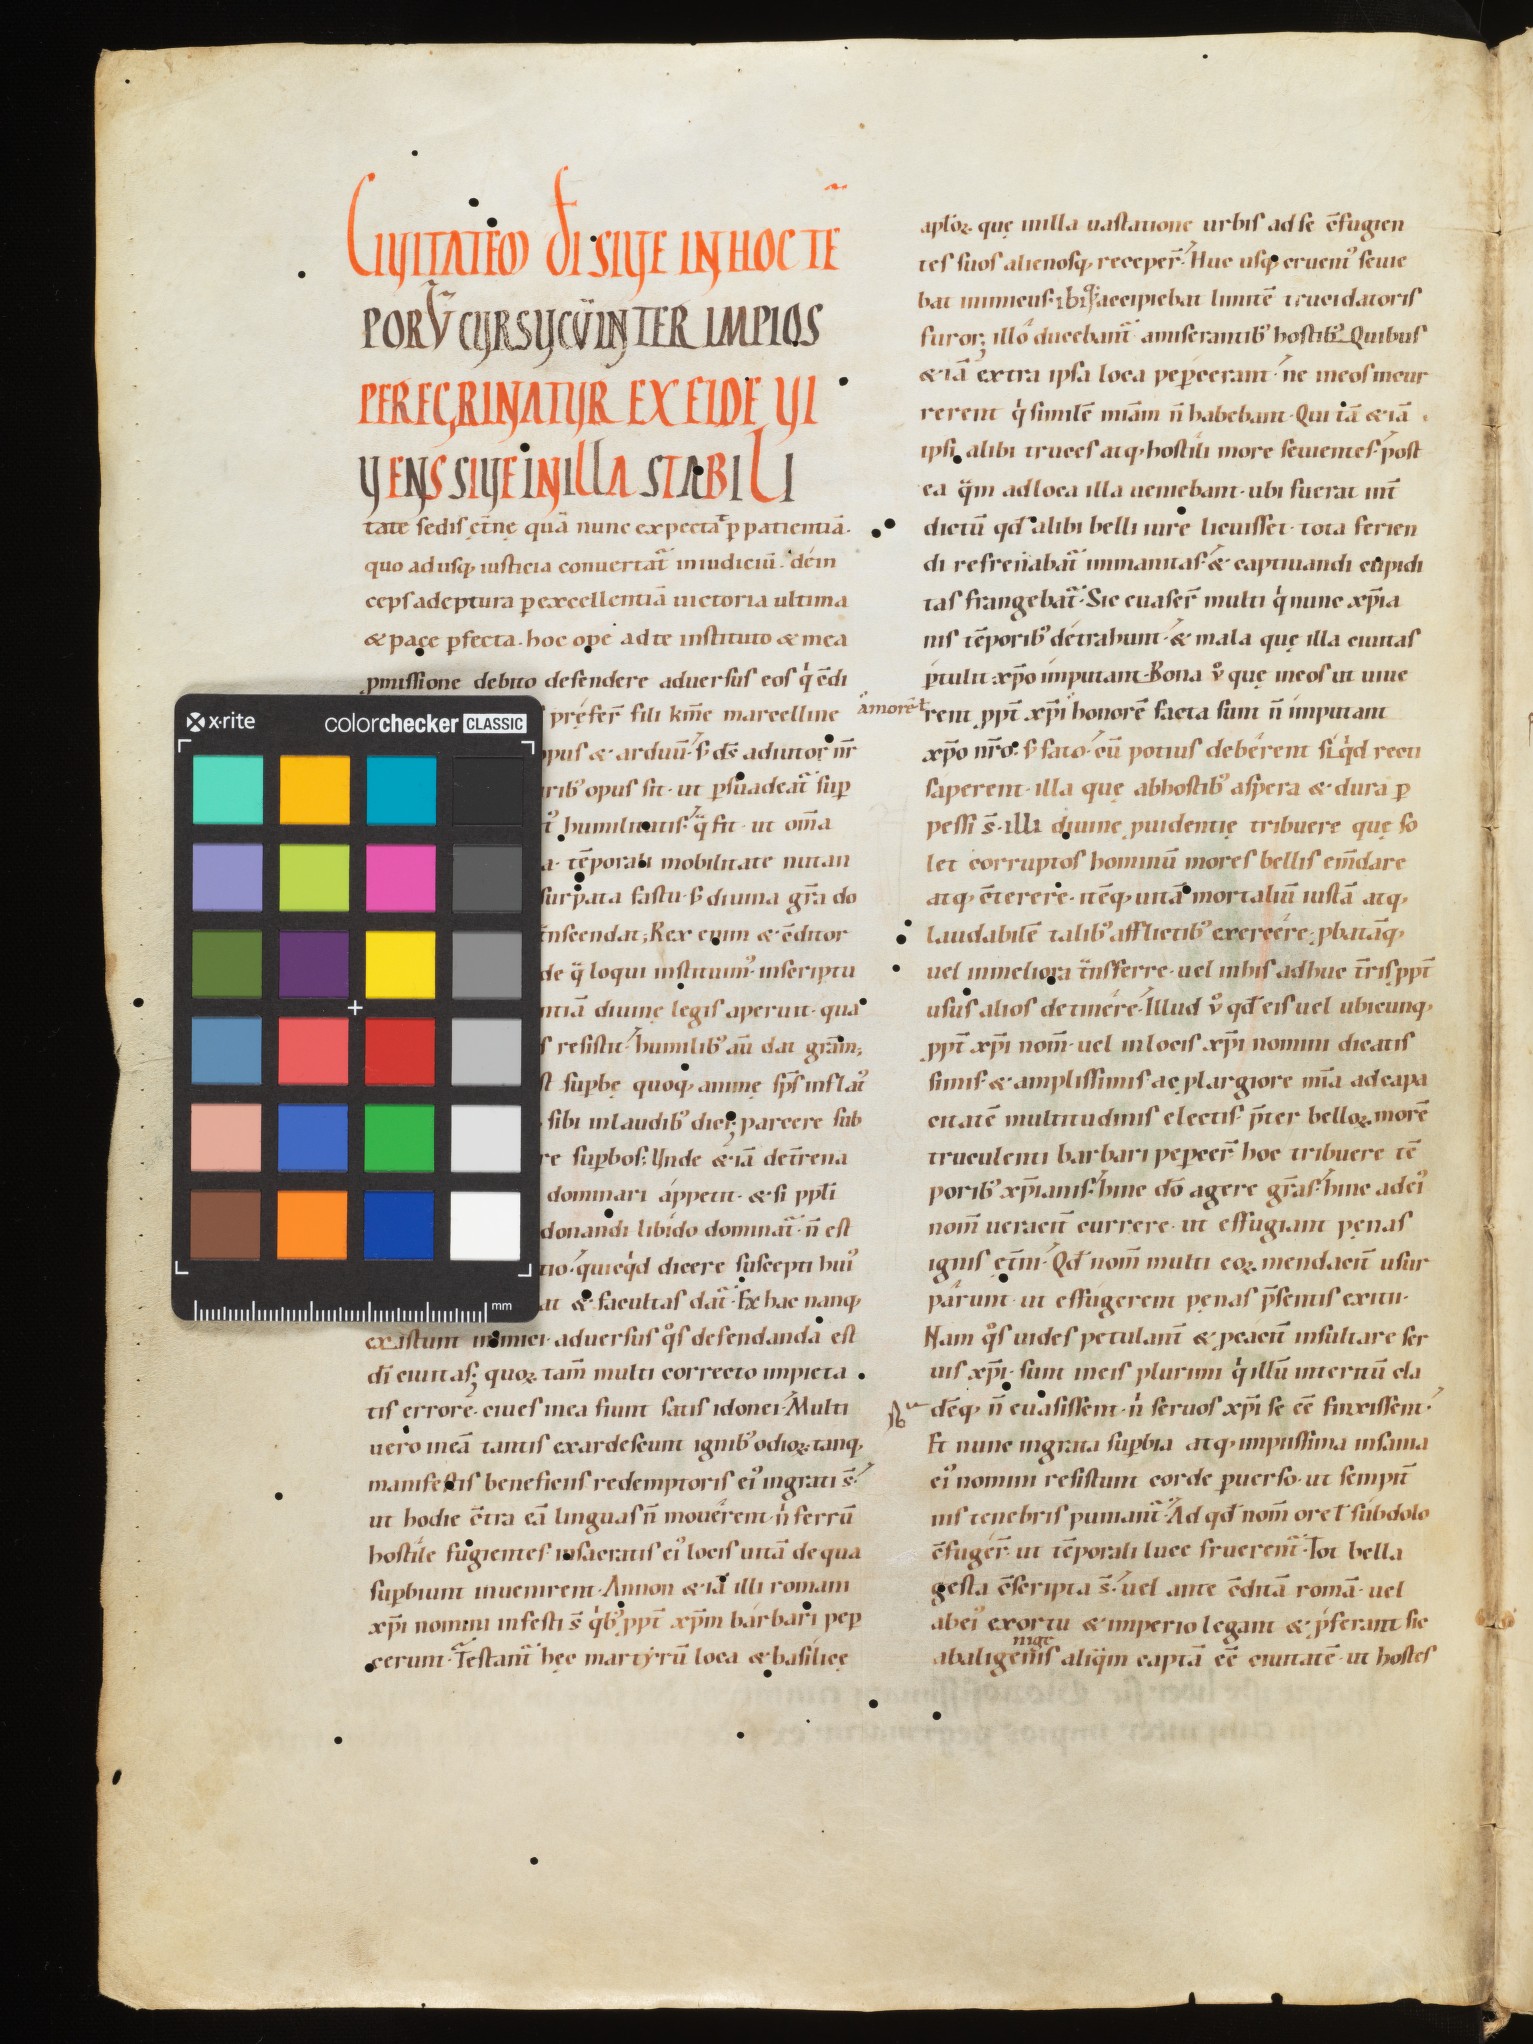 CIVITATEM DI SIVE IN HOC TĒ
PORŪ CURSU CŪ INTER IMPIOS
PEREGRINATUR EX FIDE VI
VENS SIVE IN ILLA STABILI
tate sedis ęt̄nę quā nunc expectat p patientiā·
quo adusq; iusticia conuertat̄ in iudiciū· dein
ceps adeptura p excellentiā uictoria ultima
& pace p̄fecta· hoc ope ad te instituto & mea
pmissione debito defendere aduersus eos q̇ c̄di
x·rite colorchecker CLASSIC
prefer̄ fili km̄e marcelline
opus & arduū· s; ds̄ adiutor nr̄
ribꝰ opus sit· ut p̄suadeat̄ sup
humilitatis· q̄ fit· ut om̄a
a· tēporali mobilitate nutan
surpata fastu· s; diuina gr̄a do
t̄nscendat; Rex enim & c̄ditor
de q̄ loqui instituimꝰ· in scriptu
ntiā diuinę legis aperuit· qua
s resistit· humilibꝰ aū dat gr̄am;
st sup̄bę quoq; animę sp̄s inflatꝰ
sibi in laudibꝰ dici; parcere sub
re sup̄bos: Unde &iā de t̄rena
dominari appetit· & si pp̄li
donandi libido dominat̄· n̄ est
tio· quicq̇d dicere suscepti huiꝰ
at & facultas dat̄· Ex hac nanq;
existunt inimici· aduersus q̊s defendanda est
dī ciuitas; quoꝝ tam̄ multi correcto impieta
tis errore· ciues in ea fiunt satis idonei· Multi
uero in eā tantis exardescunt ignibꝰ odioꝝ· tanq;
manifestis beneficiis redemptoris eiꝰ ingrati s̄·
ut hodie c̄tra eā linguas n̄ mouerent· n̍ ferrū
hostile fugientes· in sacratis eiꝰ locis uitā de qua
sup̄biunt inuenirent· Annon &iā illi romani
xp̄i nomini infesti s̄ q̇bꝰ ppt̄ xp̄m barbari pep
cerunt· Testant̄ hęc martyrū loca & basilicę
mm
aploꝝ· quę in illa uastatione urbis ad se c̄fugien
tes suos alienosq; receper̄· Huc usq; cruentꝰ seuie
bat inimicus· ibi accipiebat limitē trucidatoris
furor; illo ducebant̄ a miserantibꝰ hostibꝰ· Quibus
&iā extra ipsa loca pep̄cerant· ne in eos incur
rerent q̇ similē miām n̄ habebant· Qui tā &iā
ipsi alibi truces atq; hostili more seuientes· post
ea q̄m ad loca illa ueniebant· ubi fuerat int̄
dictū qd̄ alibi belli iure licuisset· tota ferien
di refrenabat̄ immanitas· & captiuandi cupidi
tas frangebat̄· Sic euaser̄ multi q̇ nunc xp̄ia
nis tēporibꝰ detrahunt· & mala quę illa ciuitas
p̄tulit xp̄o imputant· Bona v̊ quę in eos ut uiue
amorē ł
rent ppt̄ xp̄i honorē facta sunt n̄ imputant
xp̄o nr̄o· s; fato· cū potius deberent si q̇d recti
saperent· illa quę ab hostibꝰ aspera & dura p
pessi s̄· illi diuinę puidentię tribuere quę so
let corruptos hominū mores bellis em̄dare
atq; c̄terere· itēq; uitā mortaliū iustā atq;
laudabilē talibꝰ afflictibꝰ exercere; pbatāq;
uel in meliora t̄nsferre· uel in his adhuc t̄ris ppt̄
usus alios detinere· Illud v̊ qd̄ eis uel ubicunq;
ppt̄ xp̄i nom̄· uel in locis xp̄i nomini dicatis
simis· & amplissimis ac p largiore mīa ad capa
citatē multitudinis electis· p̄ter belloꝝ morē
truculenti barbari pep̄cer̄· hoc tribuere tē
poribꝰ xp̄ianis· hinc dō agere gr̄as· hinc ad eiꝰ
nom̄ ueracit̄ currere· ut effugiant penas
ignis ęt̄ni· Qd̄ nom̄ multi eoꝝ mendacit̄ usur
parunt· ut effugerent penas p̄sentis exitii·
Nam q̊s uides petulant̄ & pcacit̄ insultare ser
uis xp̄i· sunt in eis plurimi q̇ illū interitū cla
dēq; n̄ euasissent· n̍ seruos xp̄i se eē finxissent·
Et nunc ingrata sup̄bia atq; impiissima insania
eiꝰ nomini resistunt corde puerso· ut sempit̄
nis tenebris puniant̄· Ad qd̄ nom̄ ore ł subdolo
c̄fuger̄· ut tēporali luce fruerent̄· Tot bella
gesta c̄scripta s̄· uel ante c̄ditā romā· uel
ab eiꝰ exortu & imperio legant & p̄ferant sic
ab aligenis aliq̄m captā eē ciuitatē· ut hostes